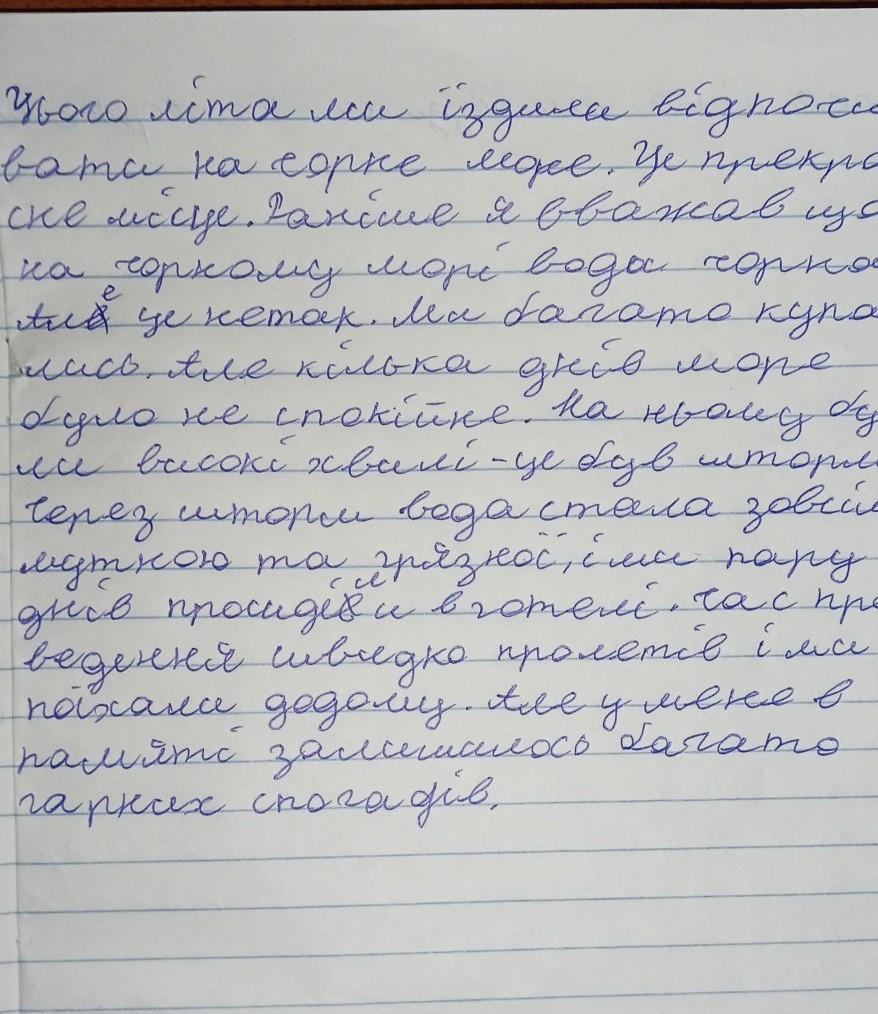 Цього літа ми їздили відпочи
вати на чорне море. Це прекра
сне місце. Раніше я вважав що
на чорному морі вода чорна
Але це нетак. Ми багато купа
лись. Але кілька днів море
було не спокійне. На ньому бу
ли високі хвилі - це був шторм
Через шторм вода стала зовсім
мутною та грязної, і ми пару
днів просиділи в готелі. Час про
ведення швидко пролетів і ми
поїхали додому. Але у мене в
памяті залишилось багато
гарних спогадів.